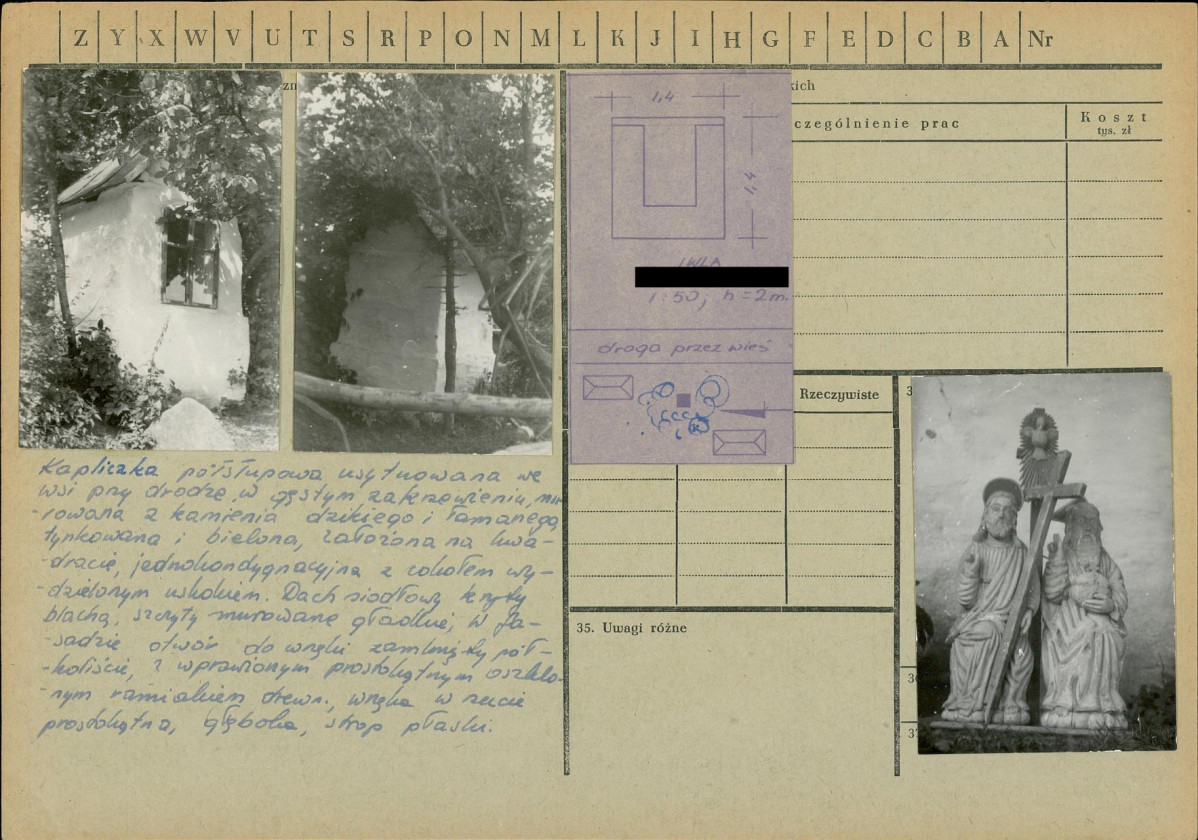 Z Y X W V U T S R P O N M L K J I H G F E D C B A Nr
zn
kich
czególnienie prac
Koszt
tys. zł
1,4
1,4
IWLA
1:50; h = 2m.
droga przez wieś
Rzeczywiste
35. Uwagi różne
Kapliczka półsłupowa usytuowana we
wsi przy drodze, w gęstym zakrzewieniu, mu-
-rowana z kamienia dzikiego i łamanego,
tynkowana i bielona, założona na kwa-
-dracie, jednokondygnacyjna z cokołem wy-
-dzielonym uskokiem. Dach siodłowy kryty
blachą, szczyty murowane gładkie, w fa-
-sadzie otwór do wnęki zamknięty pół-
-koliście, z wprawionym prostokątnym oszklo-
-nym ramiakiem drewn., wnęka w rzucie
prostokątna, głęboka, strop płaski.